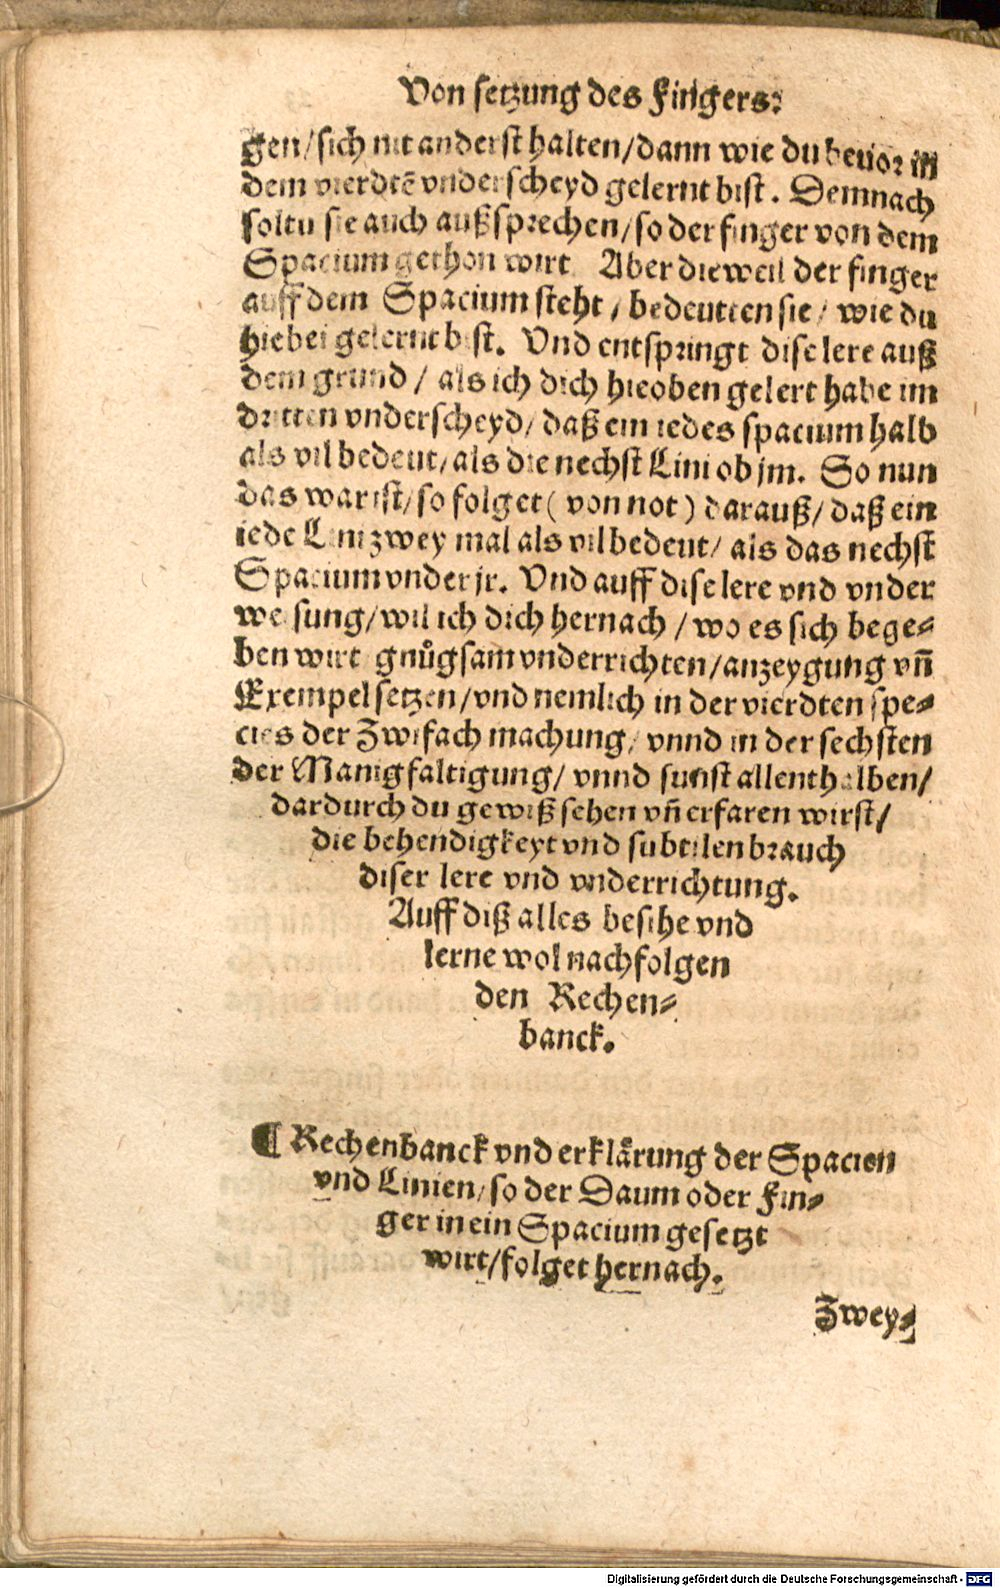 Von setzung des Fingers:
gen/ sich nit anderst halten/ dann wie du beuor in
dem vierdtē vnderscheyd gelernt bist. Demnach
soltu sie auch außsprechen/ so der finger von dem
Spacium gethon wirt. Aber dieweil der finger
auff dem Spacium steht/ bedeutten sie/ wie du
hiebei gelernt bist. Vnd entspringt dise lere auß
dem grund/ als ich dich hieoben gelert habe im
dritten vnderscheyd/ daß ein iedes spacium halb
als vil bedeut/ als die nechst Lini ob jm. So nun
das war ist/ so folget (von not) darauß/ daß ein
iede Lini zwey mal als vil bedeut/ als das nechst
Spacium vnder jr. Vnd auff dise lere vnd vnder
weisung/ wil ich dich hernach/ wo es sich bege-
ben wirt gnůgsam vnderrichten/ anzeygung vñ
Exempel setzen/ vnd nemlich in der vierdten spe-
cies der Zwifach machung/ vnnd in der sechsten
der Manigfaltigung/ vnnd sunst allenthalben/
dardurch du gewiß sehen vñ erfaren wirst/
die behendigkeyt vnd subtilen brauch
diser lere vnd vnderrichtung.
Auff diß alles besihe vnd
lerne wol nachfolgen
den Rechen-
banck.
¶ Rechenbanck vnd erklårung der Spacien
vnd Linien/ so der Daum oder Fin-
ger in ein Spacium gesetzt
wirt/ folget hernach.
Zwey-
Digitalisierung gefördert durch die Deutsche Forschungsgemeinschaft - DFG